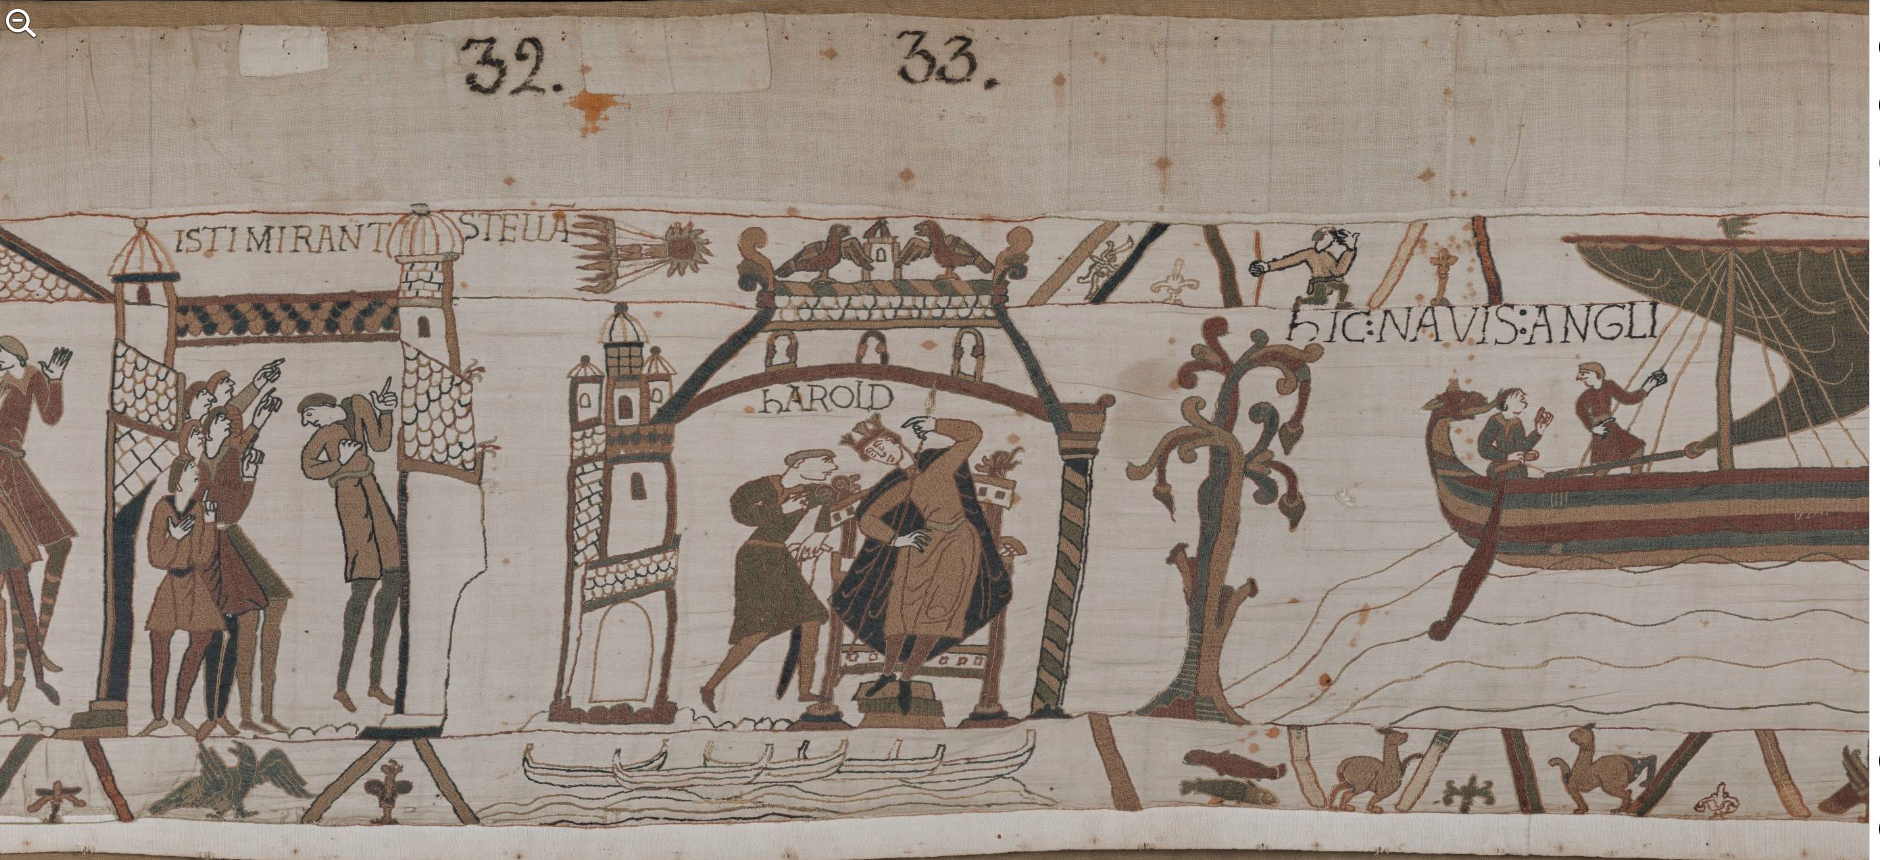 32.
33.
ISTI MIRANT STELLÃ
HAROLD
hIC:NAVIS:ANGLI